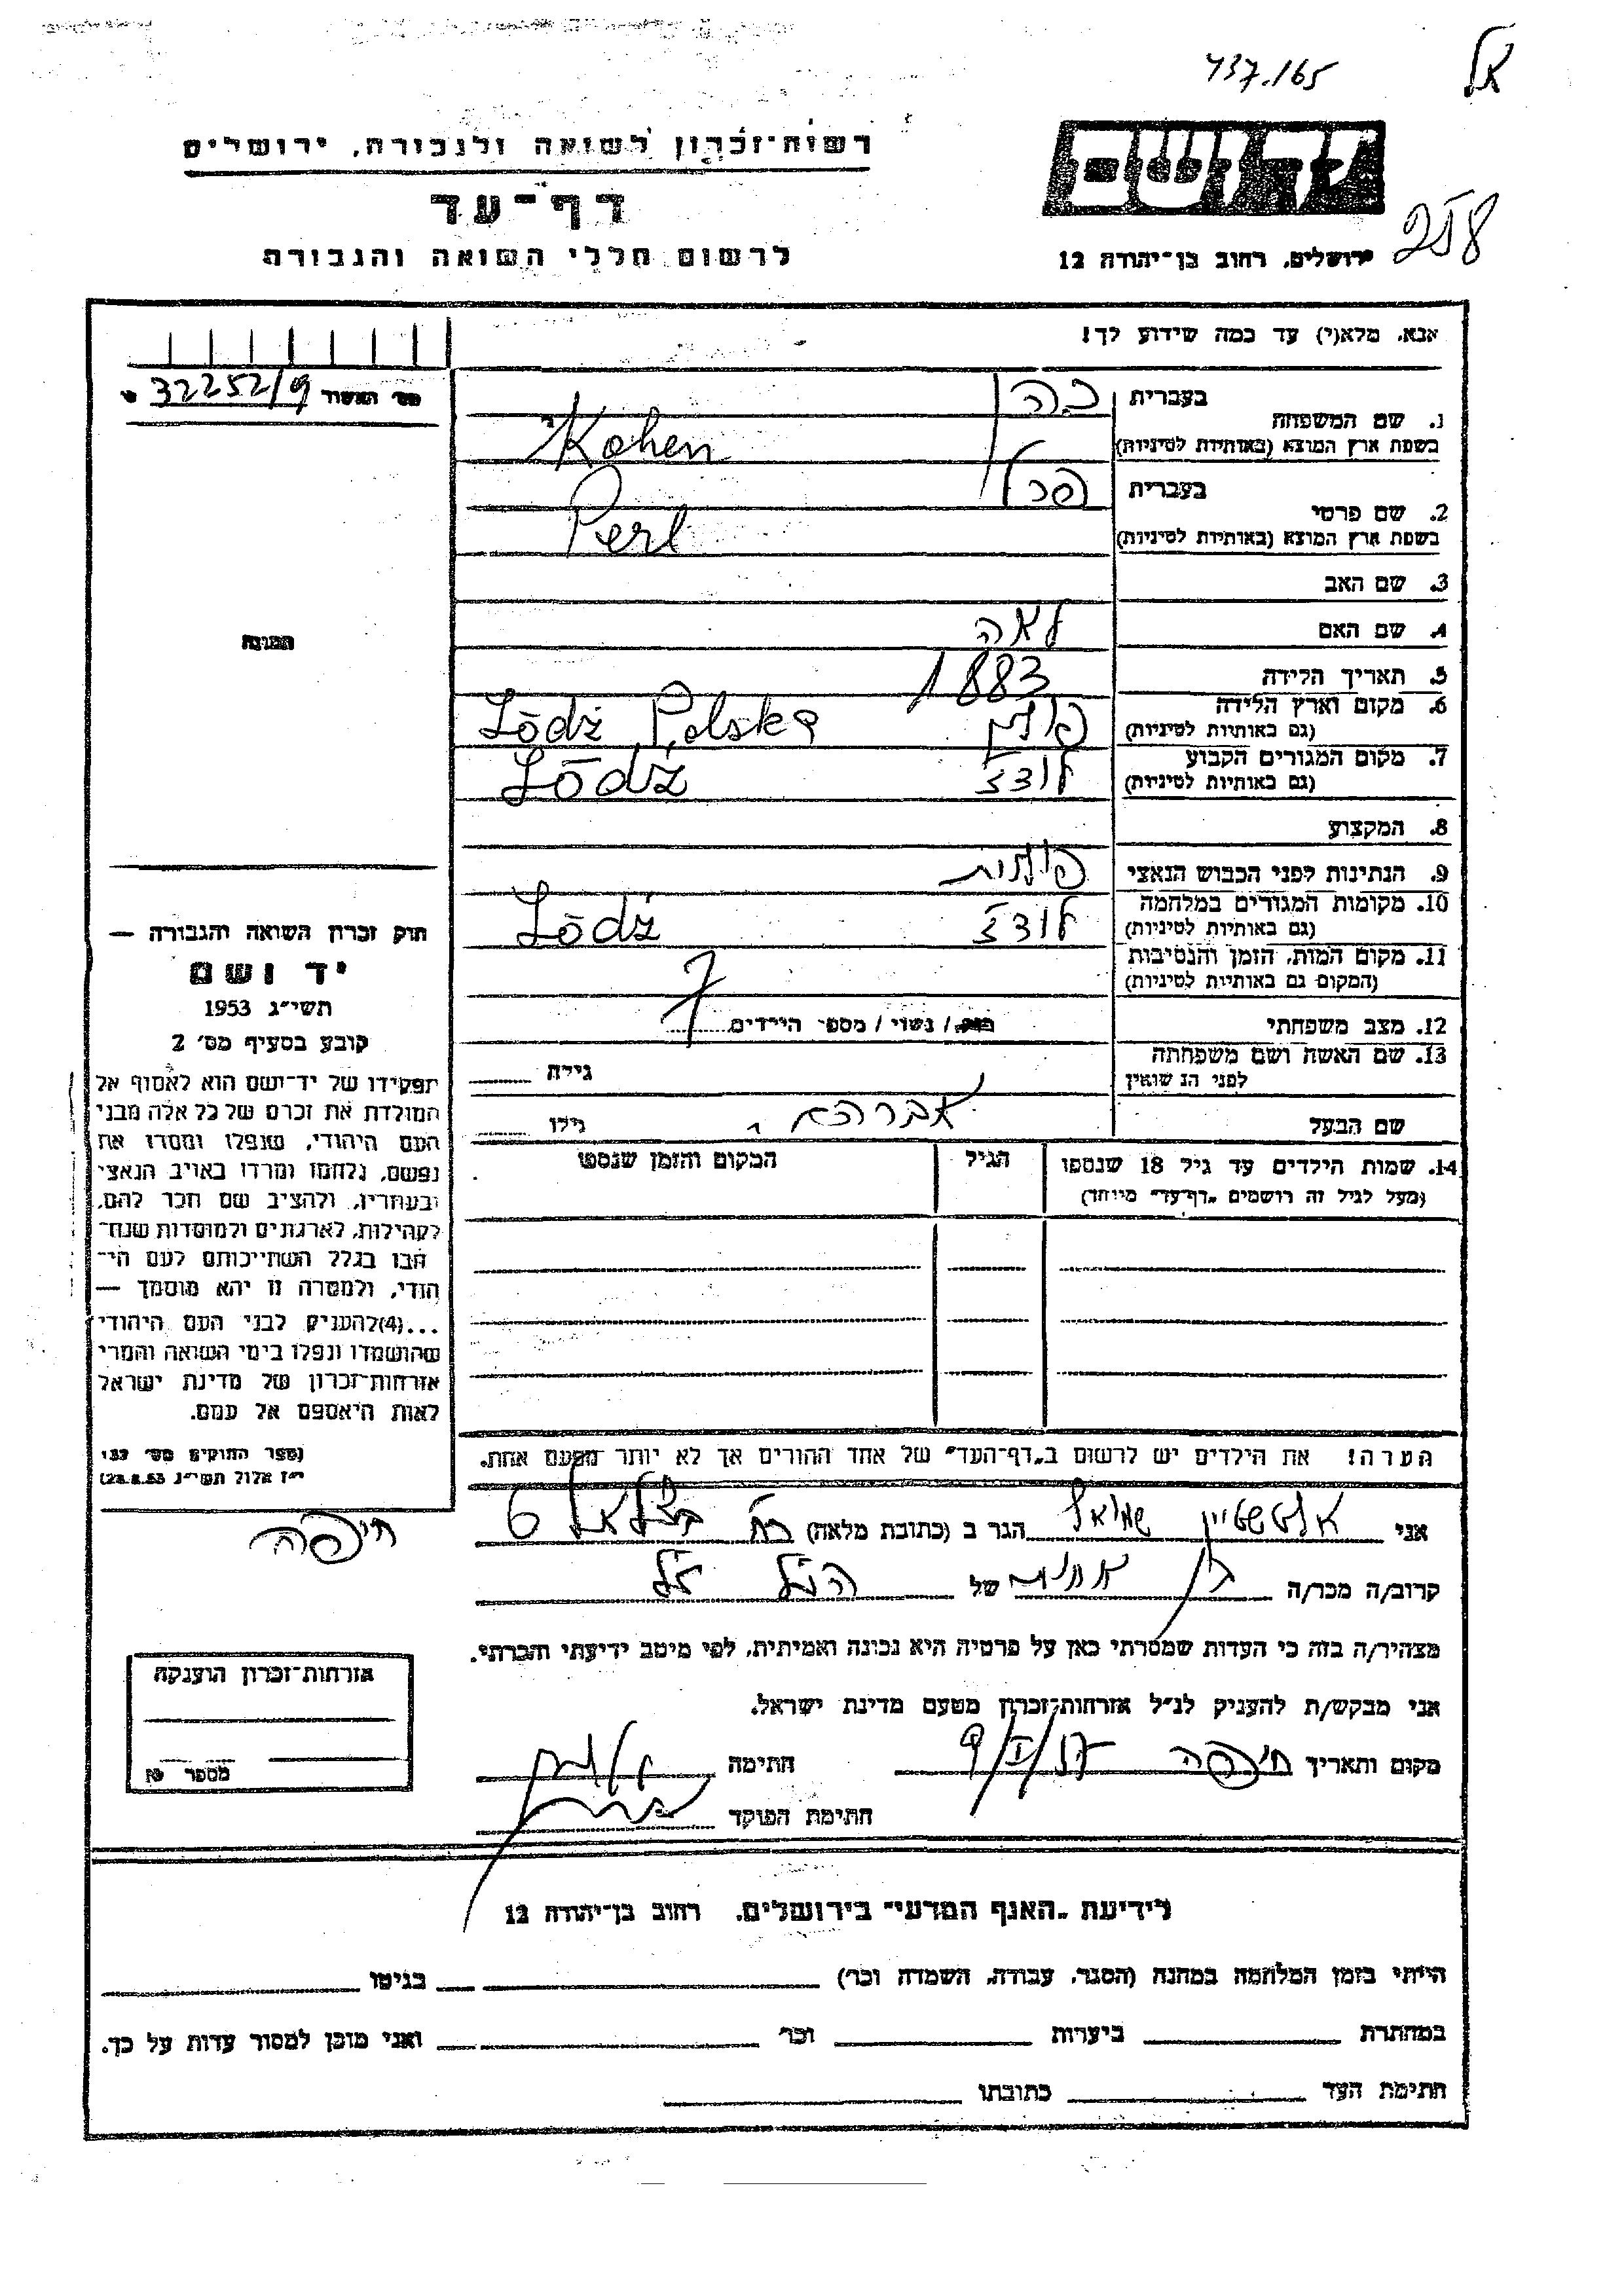 437.165
אל
רשות-זכרון לשואה ולגבורה, ירושלים
יד ושם
דף-עד
258
לרשום חללי השואה והגבורה
ירושלים, רחוב בן-יהודה 12
אנא, מלא(י) עד כמה שידוע לך!
מס׳ האשור 32252/9
1. שם המשפחה
בעברית כהן
בשפת ארץ המוצא (באותיות לטיניות) Kohen
2. שם פרטי
בעברית פרל
בשפת ארץ המוצא (באותיות לטיניות) Perl
3. שם האב
4. שם האם לאה
5. תאריך הלידה 1883
6. מקום וארץ הלידה פולין Łódź Polska
(גם באותיות לטיניות)
7. מקום המגורים הקבוע לודז Łódź
(גם באותיות לטיניות)
8. המקצוע
9. הנתינות לפני הכבוש הנאצי פולנית
10. מקומות המגורים במלחמה לודז Łódź
(גם באותיות לטיניות)
11. מקום המות, הזמן והנסיבות
(המקום גם באותיות לטיניות)
12. מצב משפחתי רווק / נשוי / מספר הילדים 7
13. שם האשה ושם משפחתה
לפני הנשואין
גילה
שם הבעל אברהם גילו
14. שמות הילדים עד גיל 18 שנספו
(מעל לגיל זה רושמים „דף-עד" מיוחד)
הגיל
המקום והזמן שנספו
התמונה
חוק זכרון השואה והגבורה —
יד ושם
תשי״ג 1953
קובע בסעיף מס׳ 2
תפקידו של יד-ושם הוא לאסוף אל
המולדת את זכרם של כל אלה מבני
העם היהודי, שנפלו ומסרו את
נפשם, נלחמו ומרדו באויב הנאצי
ובעוזריו, ולהציב שם וזכר להם,
לקהילות, לארגונים ולמוסדות שנח-
רבו בגלל השתייכותם לעם הי-
הודי, ולמטרה זו יהא מוסמך —
...(4)להעניק לבני העם היהודי
שהושמדו ונפלו בימי השואה והמרי
אזרחות-זכרון של מדינת ישראל
לאות היאספם אל עמם.
(ספר החוקים מס׳ 132
י״ז אלול תשי״ג 28.8.53)
הערה! את הילדים יש לרשום ב„דף-העד" של אחד ההורים אך לא יותר מפעם אחת.
אני אלטשטיין שמואל הגר ב (כתובת מלאה) רח׳ בצלאל 6
חיפה
קרוב/ה מכר/ה בן אחות של הנ״ל ז״ל
מצהיר/ה בזה כי העדות שמסרתי כאן על פרטיה היא נכונה ואמיתית, לפי מיטב ידיעתי והכרתי.
אני מבקש/ת להעניק לנ״ל אזרחות-זכרון מטעם מדינת ישראל.
מקום ותאריך חיפה חתימה
חתימת הפוקד
אזרחות-זכרון הוענקה
מספר
לידיעת „האגף המדעי" בירושלים. רחוב בן-יהודה 12
הייתי בזמן המלחמה במחנה (הסגר, עבודה, השמדה וכו׳) בגיטו
במחתרת ביערות וכו׳ ואני מוכן למסור עדות על כך.
חתימת העד כתובתו